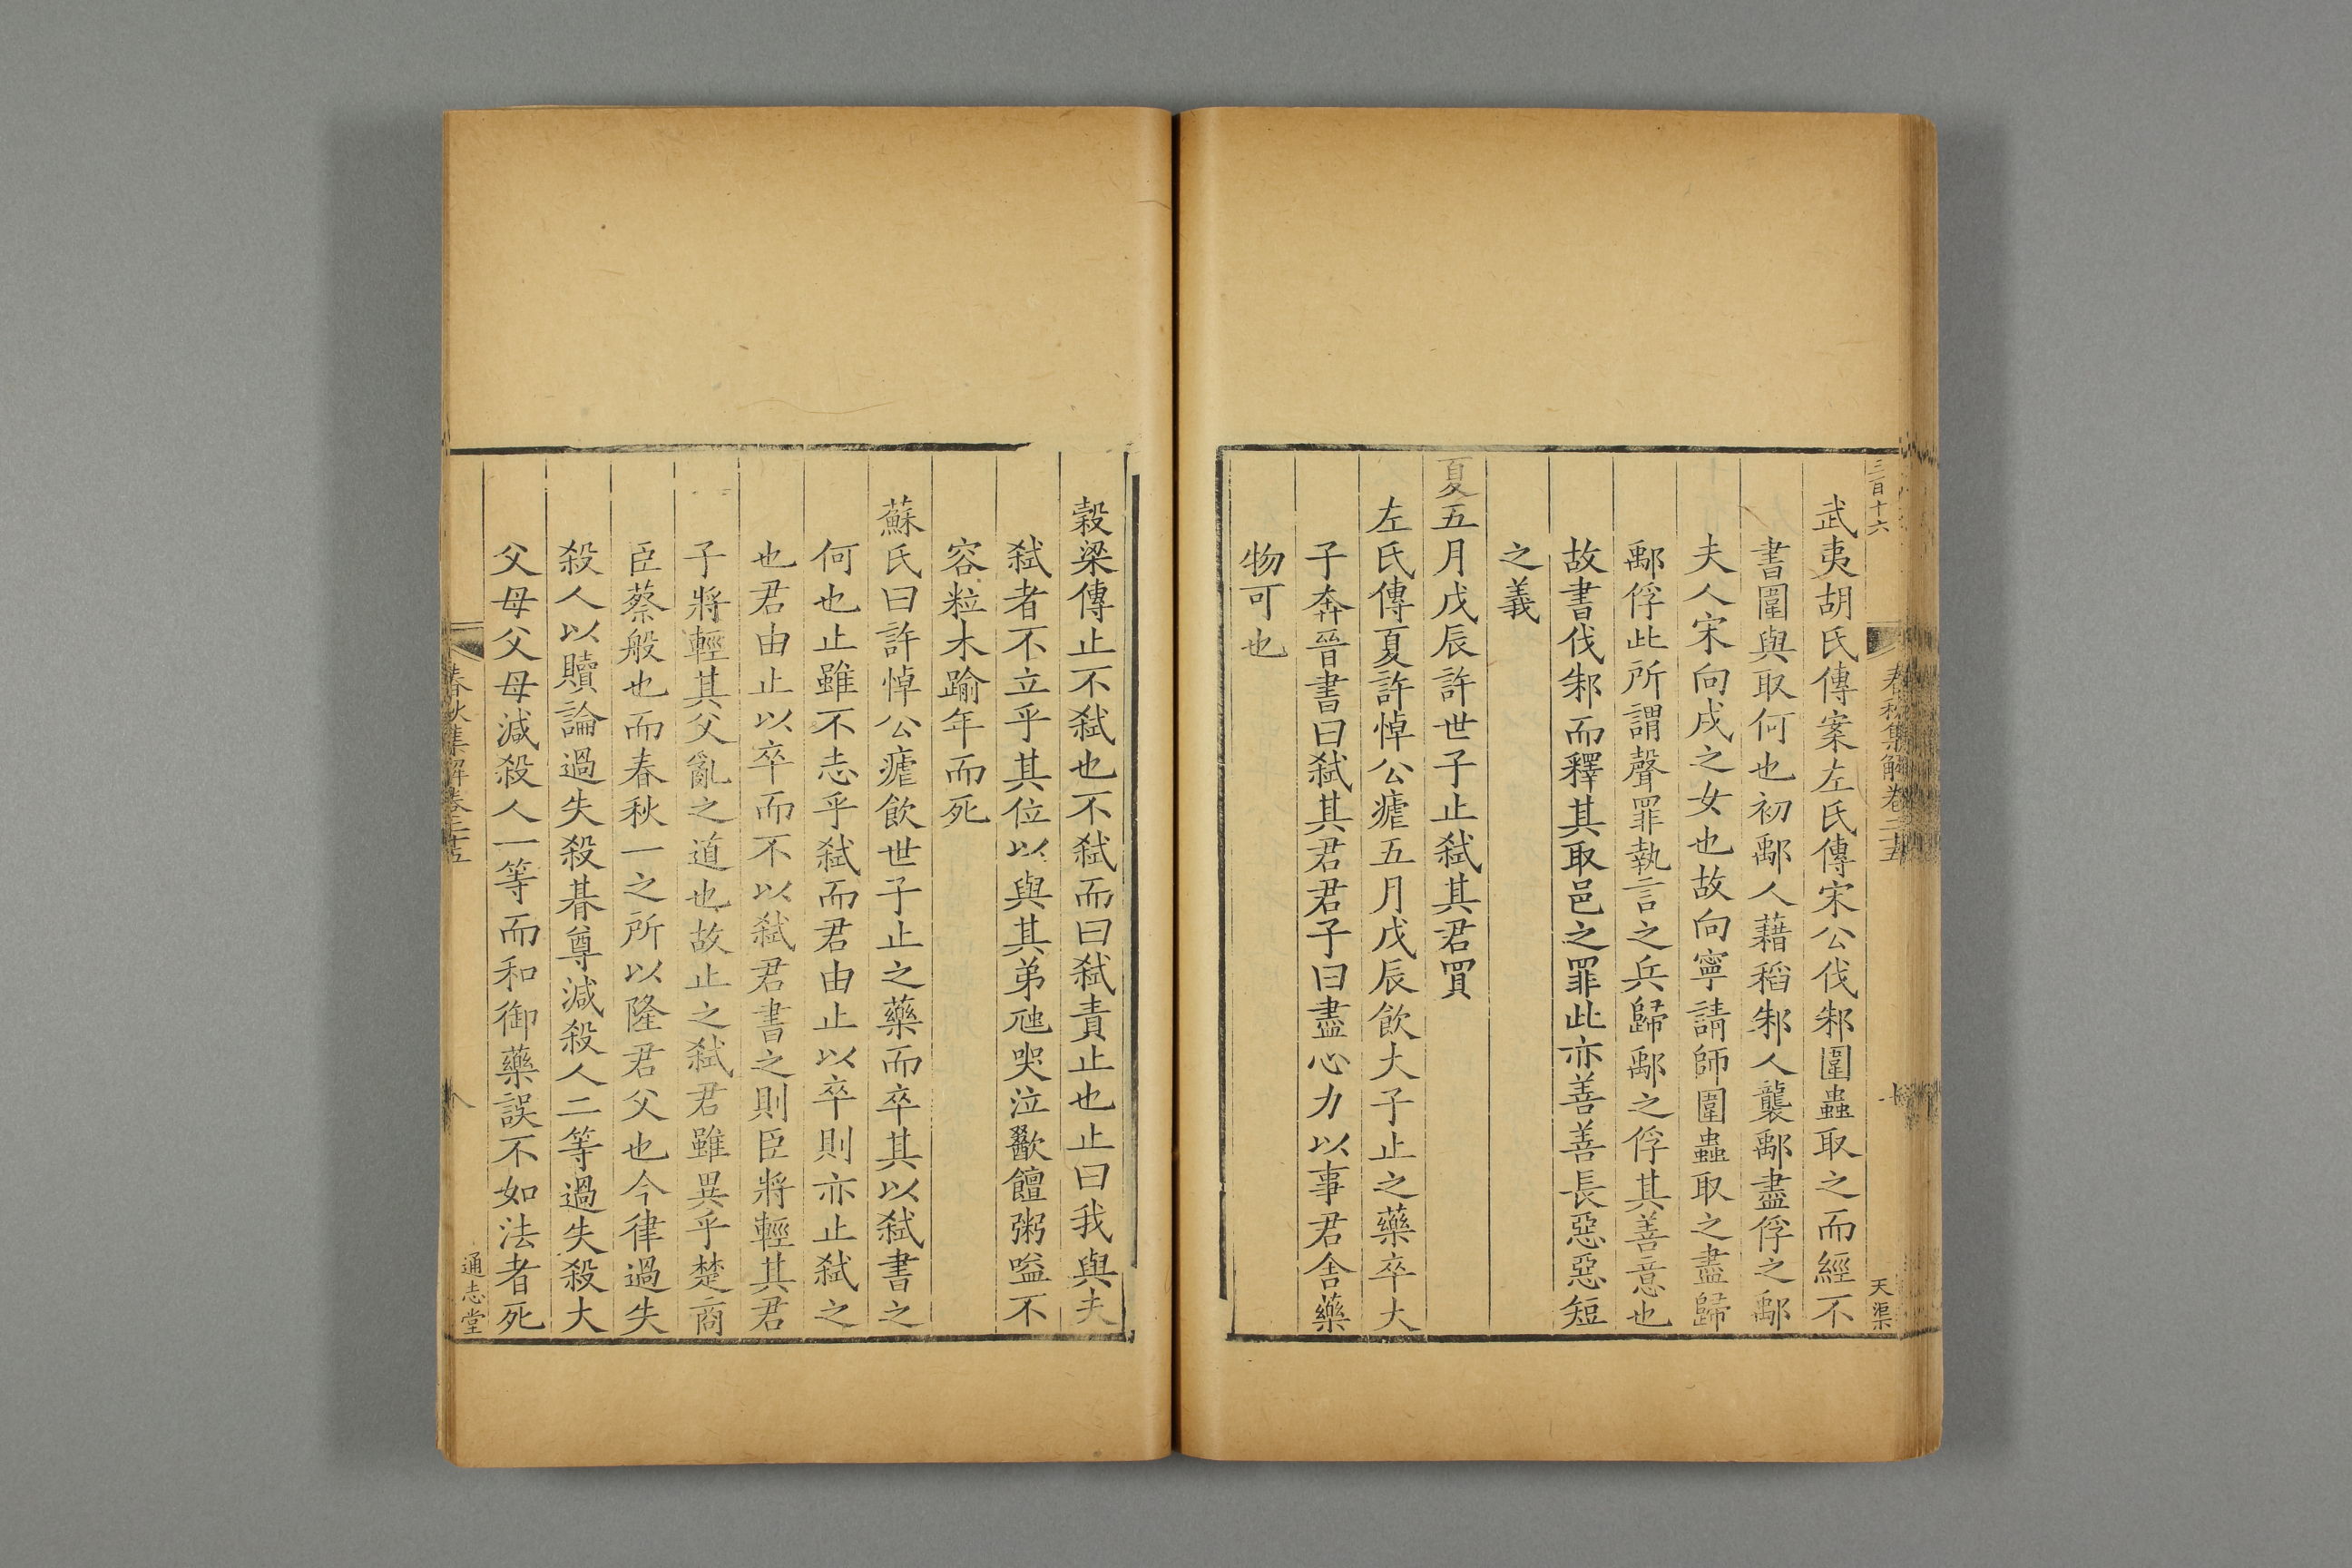 三百十六
春秋集解卷二十五
天渠
武夷胡氏傳案左氏傳宋公伐邾圍蟲取之而經不
書圍與取何也初鄅人藉稻邾人襲鄅盡俘之鄅
夫人宋向戌之女也故向寧請師圍蟲取之盡歸
鄅俘此所謂聲罪執言之兵歸鄅之俘其善意也
故書伐邾而釋其取邑之罪此亦善善長惡惡短
之義
夏五月戊辰許世子止弑其君買
左氏傳夏許悼公瘧五月戊辰飲大子止之藥卒大
子奔晉書曰弑其君君子曰盡心力以事君舍藥
物可也
穀梁傳止不弑也不弑而曰弑責止也止曰我與夫
弑者不立乎其位以與其弟虺哭泣歠饘粥嗌不
容粒木踰年而死
蘇氏曰許悼公瘧飲世子止之藥而卒其以弑書之
何也止雖不志乎弑而君由止以卒則亦止弑之
也君由止以卒而不以弑君書之則臣將輕其君
子將輕其父亂之道也故止之弑君雖異乎楚商
臣蔡般也而春秋一之所以隆君父也今律過失
殺人以贖論過失殺朞尊減殺人二等過失殺大
父母父母減殺人一等而和御藥誤不如法者死
春秋集解卷二十五
通志堂